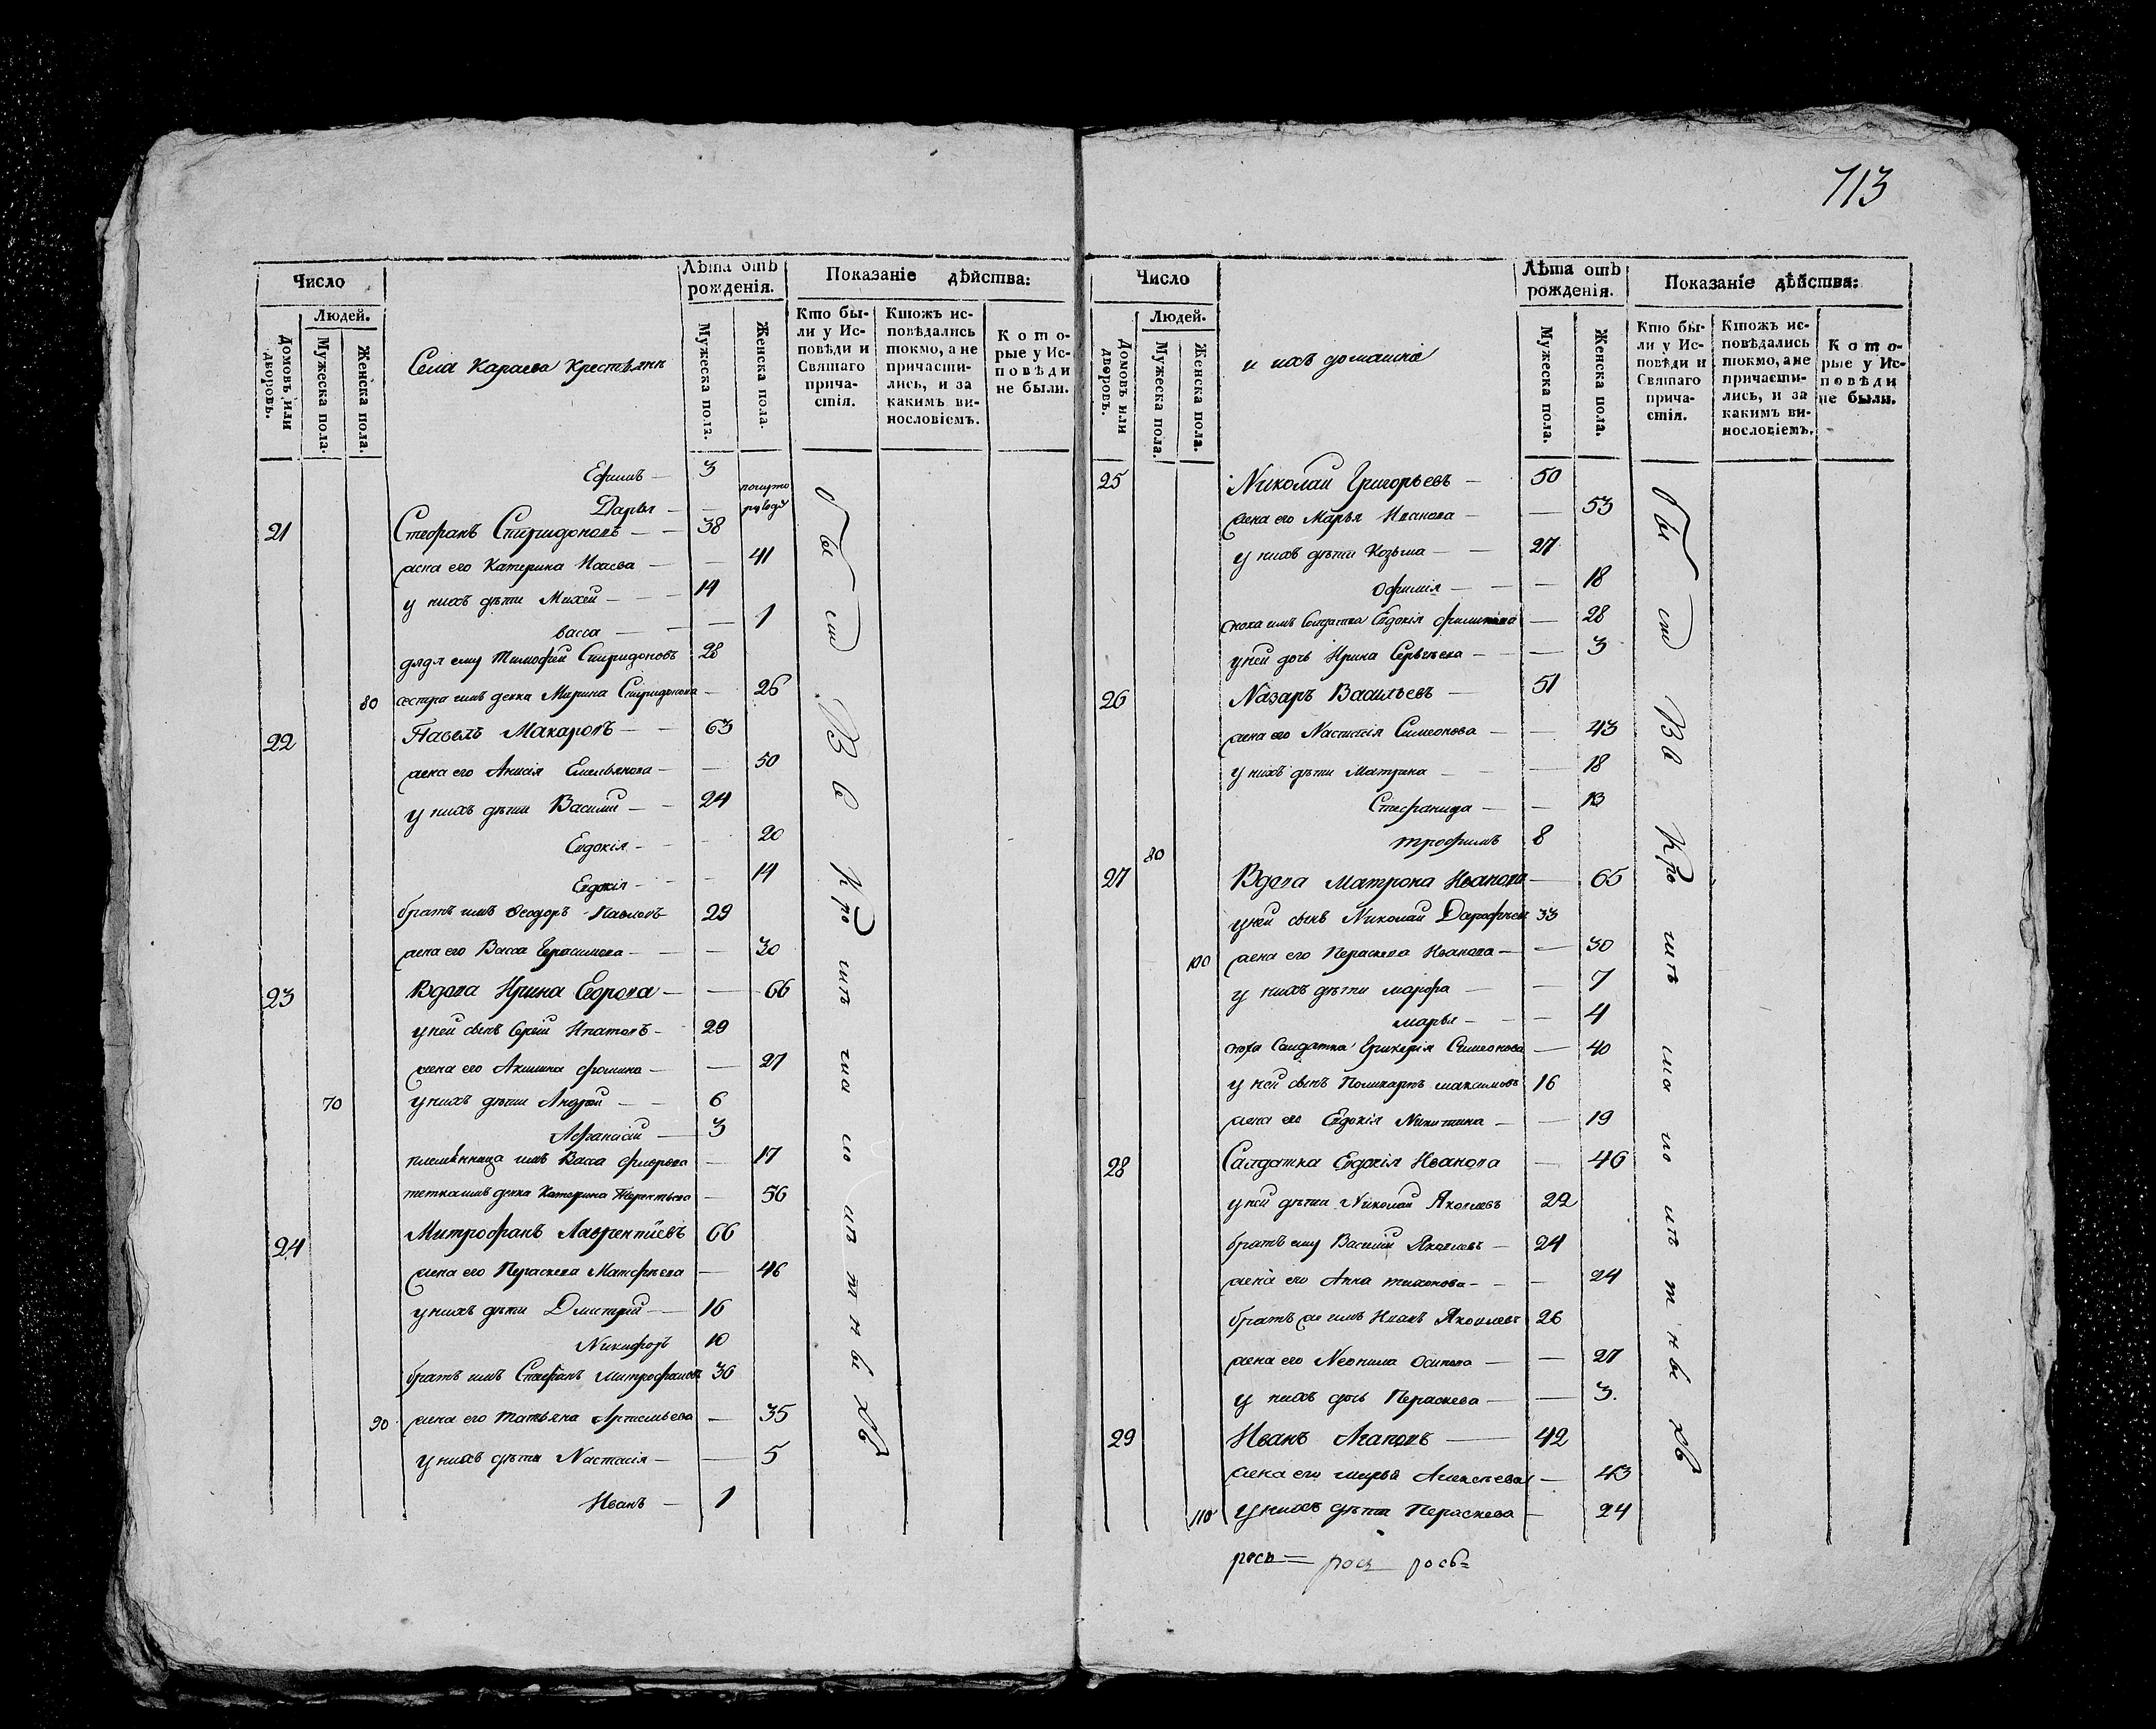 713
Число
Людей.
Домовъ или дворовъ.
Мужеска пола.
Женска пола.
Села Караева Крестьянъ
Лѣта отъ рожденія.
Мужеска пола.
Женска пола.
Показаніе дѣйства:
Кто бы-
ли у Ис-
повѣди и
Святаго
прича-
стія.
Ктожъ ис-
повѣдались
токмо, а не
причасти-
лись, и за
какимъ ви-
нословіемъ.
Кото-
рые у Ис-
повѣди
не были.
Ефимъ — 3
Дарья —
21 Стефанъ Спиридоновъ — 38
жена его Катерина Исаева — 41
у нихъ дѣти Михей — 14
Васса — 1
дядя ему Тимофей Спиридоновъ 28
80 сестра имъ девка Марина Спиридонова — 26
22 Павелъ Макаровъ — 63
жена его Анисія Емельянова — 50
у нихъ дѣти Василий — 24
Евдокія — 20
Евдокія — 14
братъ имъ Феодоръ Павловъ 29
жена его Васса Герасимова — 30
23 Вдова Ирина Егорова — 66
у ней сынъ Сергѣй Ипатовъ — 29
жена его Акилина Фомина — 27
70 у нихъ дѣти Андрей — 6
Афанасій — 3
племянница имъ Васса Флорова — 17
тетка имъ девка Катерина Терентьева — 56
24 Митрофанъ Лаврентіевъ 66
жена его Пераскева Матфѣева — 46
у нихъ дѣти Дмитрій — 16
Никифоръ 10
братъ имъ Стефанъ Митрофановъ 36
90 жена его Татьяна Артемьева — 35
у нихъ дѣти Настасія — 5
Иванъ — 1
бы ст В с Кро
Число
Людей.
Домовъ или дворовъ.
Мужеска пола.
Женска пола.
и ихъ домашніе
Лѣта отъ рожденія.
Мужеска пола.
Женска пола.
Показаніе дѣйства:
Кто бы-
ли у Ис-
повѣди и
Святаго
прича-
стія.
Ктожъ ис-
повѣдались
токмо, а не
причасти-
лись, и за
какимъ ви-
нословіемъ.
Кото-
рые у Ис-
повѣди
не были.
25 Николай Григорьевъ — 50
жена его Марья Иванова — 53
у нихъ дѣти Козьма — 27
Офимія — 18
сноха имъ Солдатка Евдокія Филипова — 28
у ней дочь Ирина Сергѣева — 3
26 Назаръ Васильевъ — 51
жена его Настасія Симеонова — 43
у нихъ дѣти Матрина — 18
Стефанида — 13
80 Трофимъ 8
27 Вдова Матрона Иванова — 65
у ней сынъ Николай Дарофѣевъ 33
100 жена его Пераскева Иванова — 30
у нихъ дѣти Марфа — 7
Марья — 4
сноха Салдатка Гликерія Симеонова — 40
у ней сынъ Поликарпъ Максимовъ 16
жена его Евдокія Никитина — 19
28 Салдатка Евдокія Иванова — 46
у ней дѣти Николай Яковлевъ 22
братъ ему Василий Яковлевъ — 24
жена его Анна Тихонова — 24
братъ же имъ Иванъ Яковлевъ 26
жена его Неонила Осипова — 27
у нихъ дочь Пераскева — 3
29 Иванъ Агаповъ — 42
жена его Марья Алексѣева — 43
110 у нихъ дѣти Пераскева — 24
бы ст В с Кро
росъ= росъ рось=